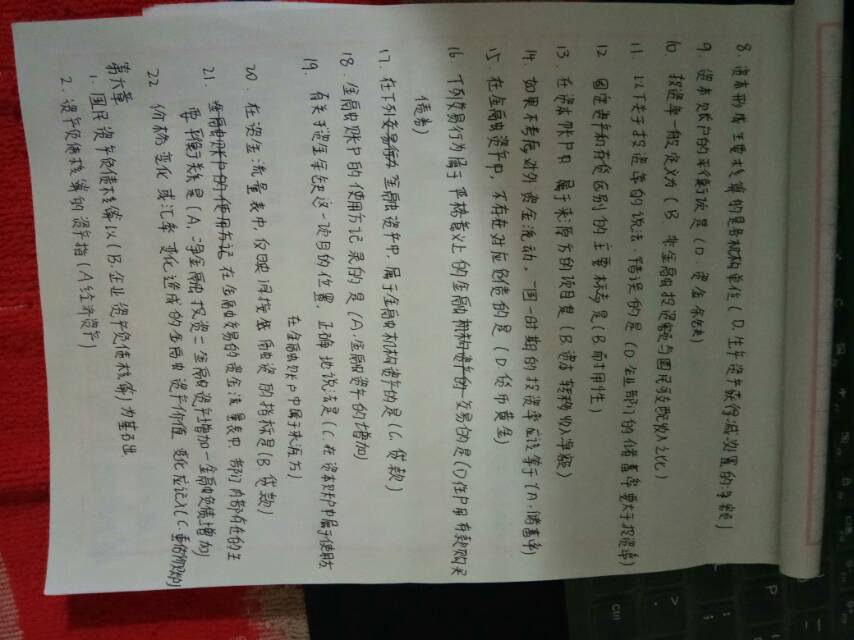 8. 资本形成主要核算的是各机构单位(D.生产资产获得减处置的净额)
9. 资本账户的平衡项是(D.资金余缺)
10. 投资率一般定义为(B 非金融投资总额与国民可支配收入之比)
11. 以下关于投资率的说法,错误的是(D企业部门的储蓄率要大于投资率)
12 固定资产和存货区别的主要标志是(B耐用性)
13. 在资本账户中 属于来源方的项目是(B资本转移收入净额)
14. 如果不考虑对外资金流动,一国一时期的投资率应该等于(A.储蓄率)
15. 在金融资产中,不存在对应负债的是(D货币黄金)
16. 下列交易行为属于严格意义上的金融交易的是(D住户用存款购买
债券)
17. 在下列金融资产中,属于金融机构资产的是(C.贷款)
18. 金融账户的使用方记录的是(A.金融资产的增加)
19. 有关于资金余缺这一项目的位置,正确地说法是(C.在资本账户中属于使用方
在金融账户中属于来源方)
20. 在资金流量表中,仅反映间接融资的指标是(B.贷款)
21. 在金融交易的资金流量表中,部门内部存在的主
要平衡关系是(A.净金融投资=金融资产增加-金融负债增加)
22 价格变化或汇率变化造成的金融资产价值变化应记入(C.重估价账户)
第六章
1. 国民资产负债核算以(B企业资产负债核算)为基础
2. 资产负债核算的资产指(A经济资产)